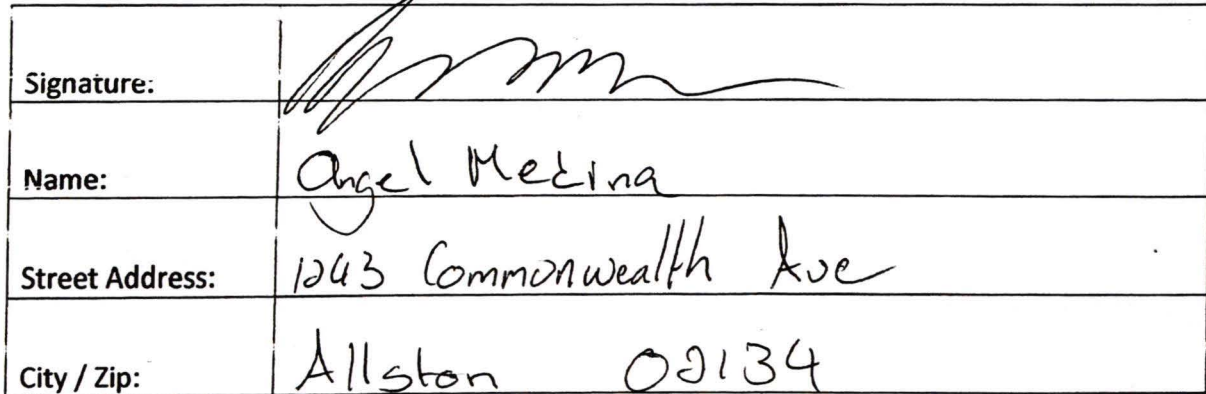 Signature:
Name: Angel Medina
Street Address: 1243 Commonwealth Ave
City / Zip: Allston 02134